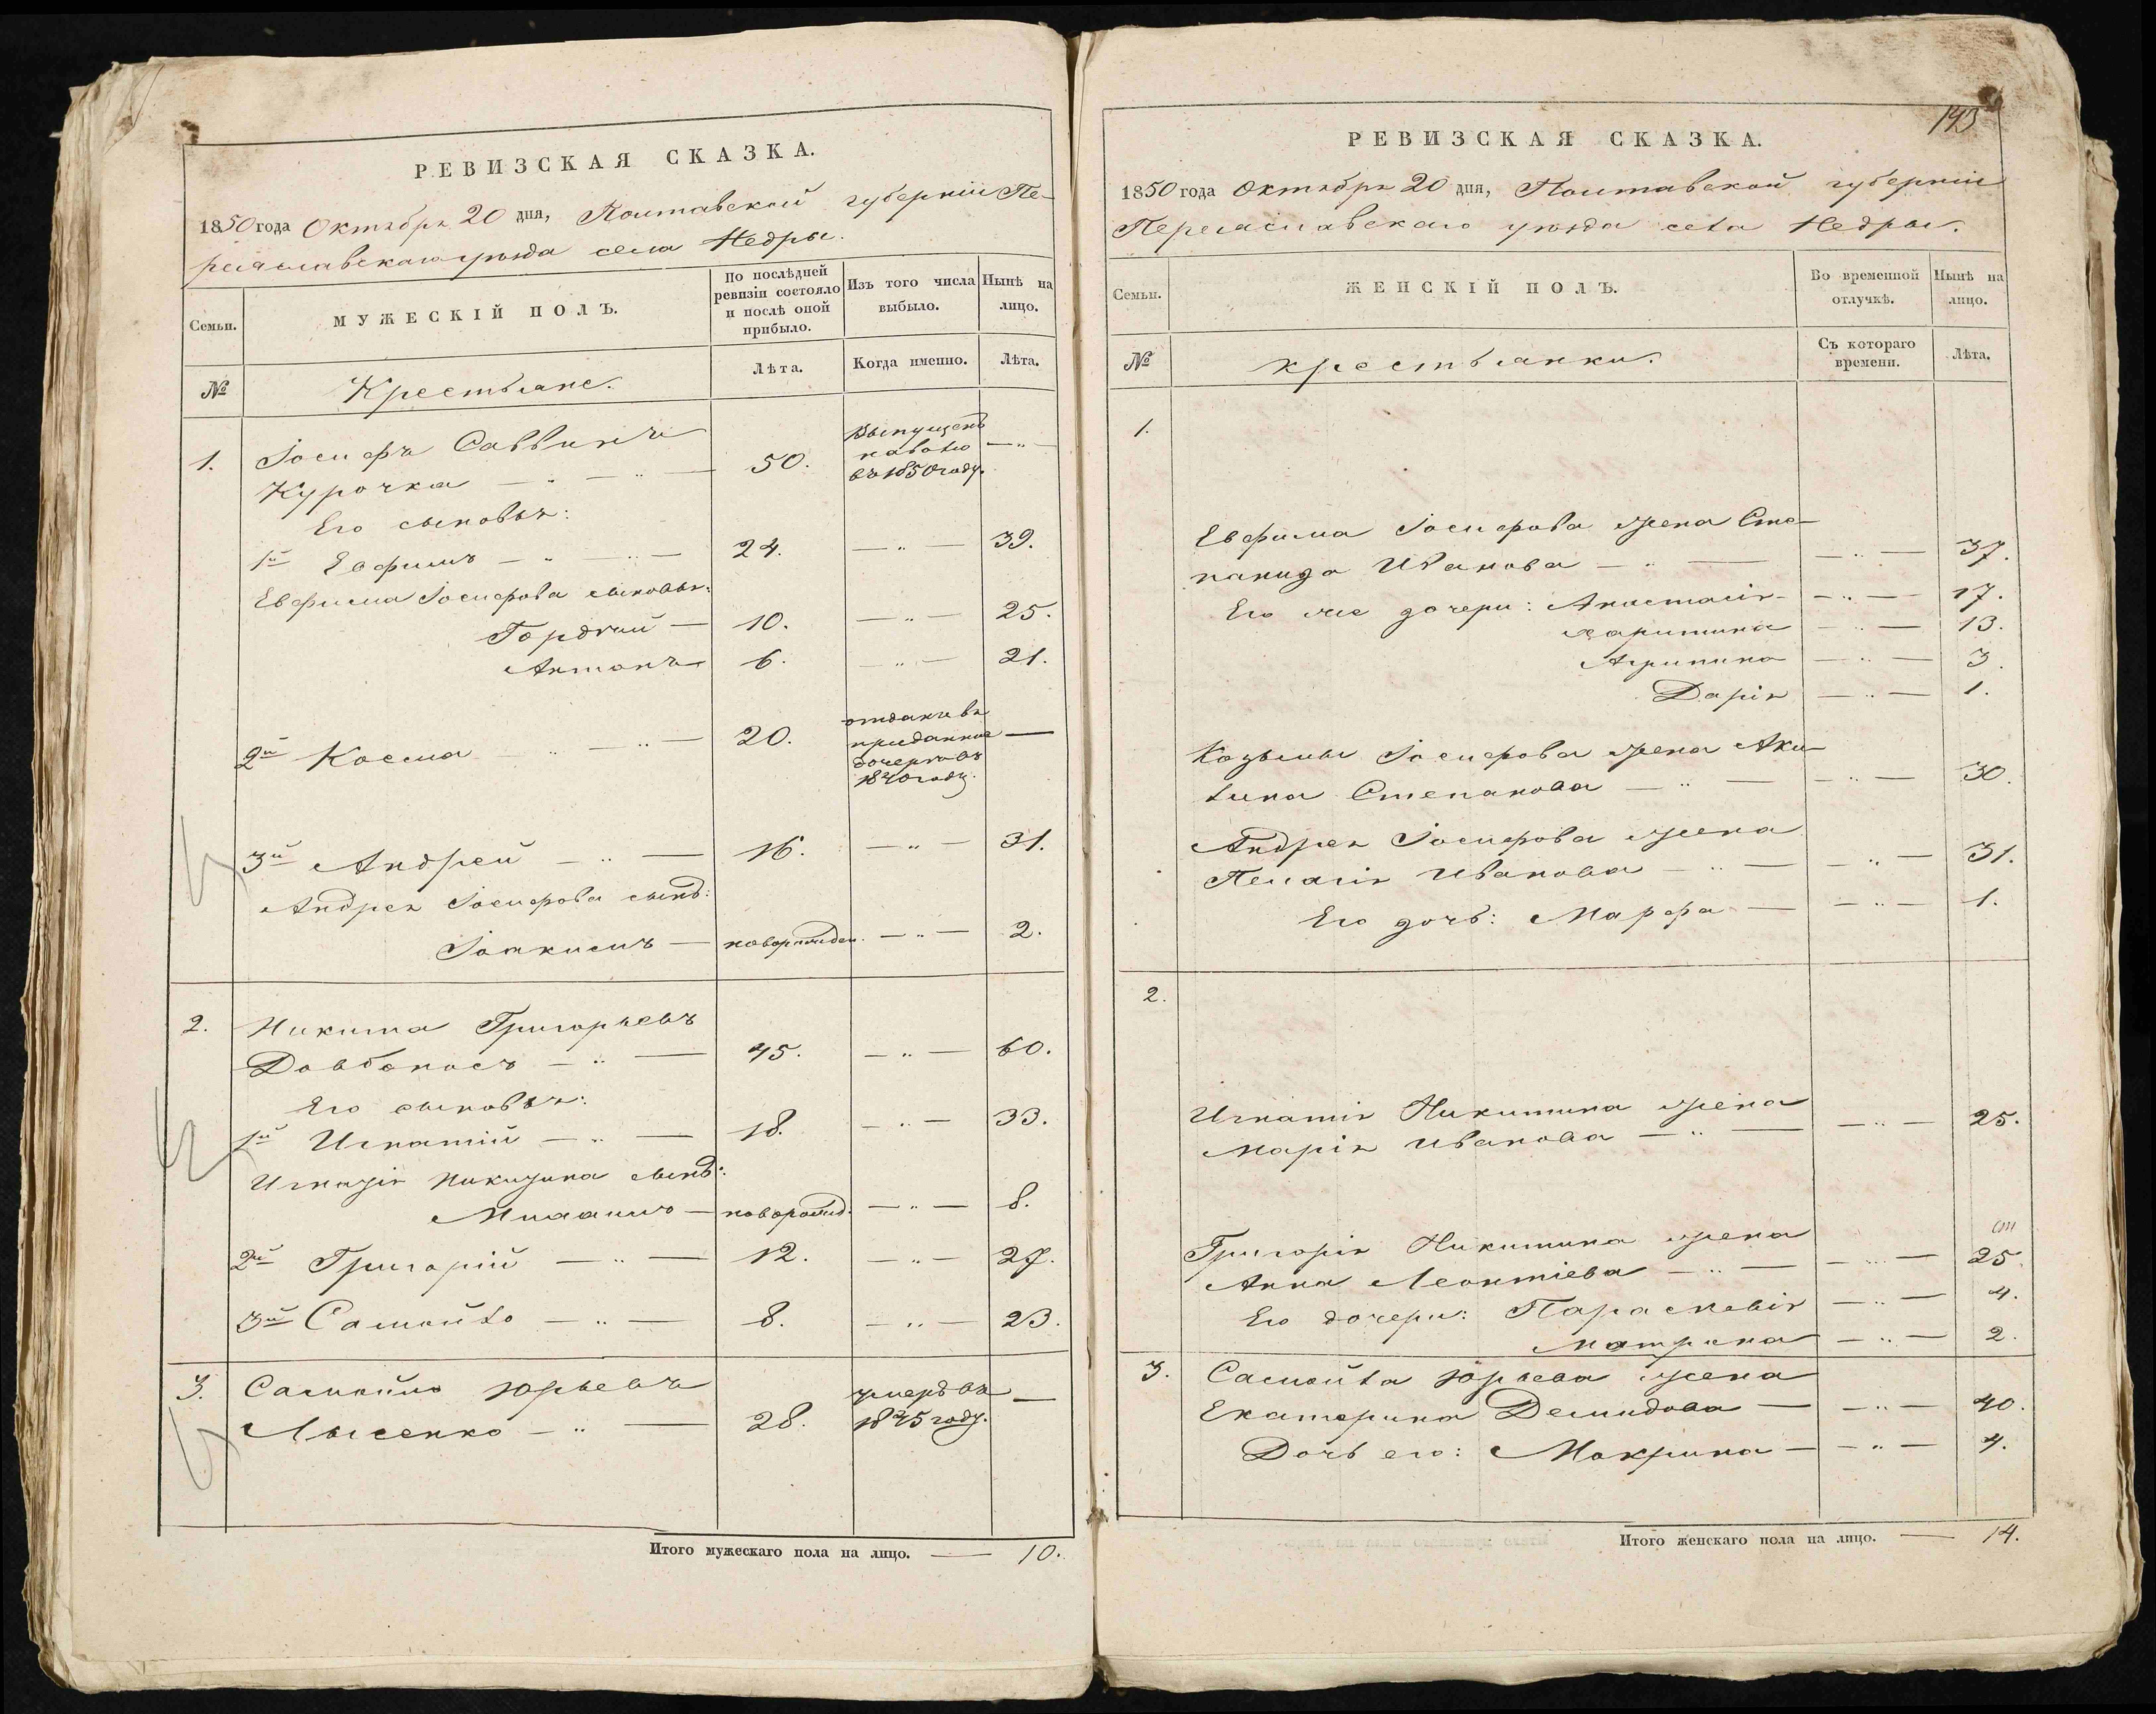 РЕВИЗСКАЯ СКАЗКА.
1850 года Октября 20 дня, Полтавской губерніи Пе-
реяславскаго уѣзда села Недры.
Семьи.
МУЖЕСКІЙ ПОЛЪ.
По послѣдней
ревизіи состояло
и послѣ оной
прибыло.
Изъ того числа
выбыло.
Нынѣ на
лицо.
№
Крестьяне.
Лѣта.
Когда именно.
Лѣта.
1. Іосифъ Саввинъ
Курочка — „ — „ — 50. Выпущенъ
на волю
въ 1850 году. — „ —
Его сыновья:
1й Евфимъ — „ — „ — 24. — „ — 39.
Евфима Іосифова сыновья:
Гордѣй — 10. — „ — 25.
Антонъ 6. — „ — 21.
2й Косма — „ — „ — 20. отданъ въ
приданное
дочери въ
1840 году. —
3й Андрей — „ — 16. — „ — 31.
Андрея Іосифова сынъ:
Іоакимъ — новорожден. — „ — 2.
2. Никита Григорьевъ
Довбоносъ — „ — 45. — „ — 60.
Его сыновья:
1й Игнатій — „ — 18. — „ — 33.
Игнатія Никитина сынъ:
Михаилъ — новорожд. — „ — 8.
2й Григорій — „ — 12. — „ — 27.
3й Самойло — „ — 8. — „ — 23.
3. Самойло Юрьевъ
Лысенко — „ — 28. умеръ въ
1845 году. —
Итого мужескаго пола на лицо. — 10.
143
РЕВИЗСКАЯ СКАЗКА.
1850 года Октября 20 дня, Полтавской губерніи
Переяславскаго уѣзда села Недры.
Семьи.
ЖЕНСКІЙ ПОЛЪ.
Во временной
отлучкѣ.
Нынѣ на
лицо.
№
Крестьянки.
Съ котораго
времени.
Лѣта.
1.
Евфима Іосифова жена Сте-
панида Иванова — „ — — „ — 37.
Его же дочери: Анастасія — „ — 17.
Харитина — „ — 13.
Агрипина — „ — 3.
Дарія — „ — 1.
Козьмы Іосифова жена Аку-
лина Степанова — „ — — „ — 30.
Андрея Іосифова жена
Пелагія Иванова — „ — — „ — 31.
Его дочь: Марфа — — „ — 1.
2.
Игнатія Никитина жена
Марія Иванова — „ — — „ — 25.
Григорія Никитина жена
Анна Леонтіева — „ — — „ — 25.
Его дочери: Параскевія — „ — 4.
Матрона — „ — 2.
3. Самойла Юрьева жена
Екатерина Демидова — — „ — 40.
Дочь его: Макрина — — „ — 4.
Итого женскаго пола на лицо. — 14.